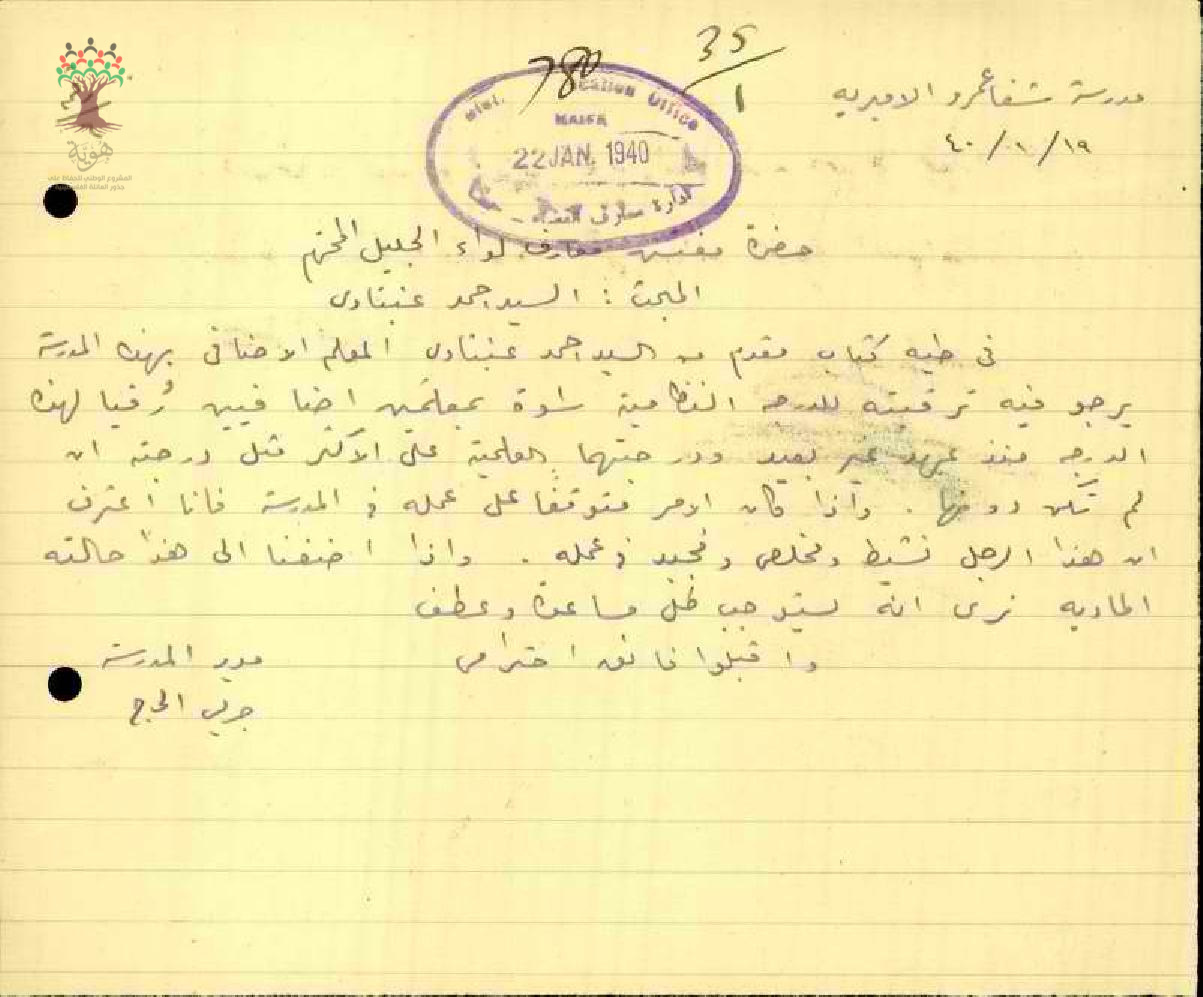 35/1
780
مدرسة شفاعمرو الاميريه
١٩/١/٤٠
Education Office
HAIFA
22 JAN. 1940
ادارة معارف
حضرة مفتش معارف لواء الجليل المحترم
المبحث : السيد احمد عنبتاوي
في طيه كتاب مقدم من السيد احمد عنبتاوي المعلم الاضافي بهذه المدرسة
يرجو فيه ترقيته للدرجه النظامية اسوة بمعلمين اضافيين رُقيا لهذه
الدرجه منذ عهد غير بعيد ودرجتهما العلمية على الاكثر مثل درجته ان
لم تكن دونها . واذا كان الامر متوقفا على عمله في المدرسة فانا اعترف
ان هذا الرجل نشيط ومخلص ومجيد في عمله . واذا اضفنا الى هذا حالته
الماديه نرى انه يستوجب كل مساعدة وعطف
واقبلوا فائق احترامي
مدير المدرسة
الحاج
هويّة
المشروع الوطني للحفاظ على
جذور العائلة